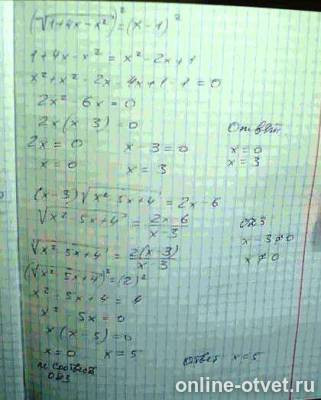 (√1+4x-x²)²=(x-1)²
1+4x-x²=x²-2x+1
x²+x²-2x-4x+1-1=0
2x²-6x=0
2x(x-3)=0
2x=0 x-3=0
x=0 x=3
Ответ
x=0
x=3
(x-3)√x²-5x+4=2x-6
√x²-5x+4=2x-6/x-3
ОДЗ
x-3≠0
x≠0
√x²-5x+4=2(x-3)/x-3
(√x²-5x+4)²=(2)²
x²-5x+4=4
x²-5x=0
x(x-5)=0
x=0 x=5
соответ
ОДЗ
Ответ x=5
online-otvet.ru